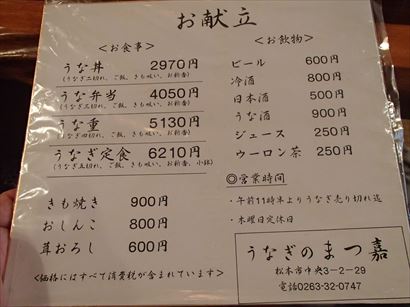 お献立
＜お食事＞
うな丼 2970円
(うなぎ二切れ、ご飯、きも吸い、お新香)
うな弁当 4050円
(うなぎ三切れ、ご飯、きも吸い、お新香)
うな重 5130円
(うなぎ四切れ、ご飯、きも吸い、お新香)
うなぎ定食 6210円
(うなぎ五切れ、ご飯、きも吸い、お新香、小鉢)
きも焼き 900円
おしんこ 800円
茸おろし 600円
＜価格にはすべて消費税が含まれています＞
＜お飲物＞
ビール 600円
冷酒 800円
日本酒 500円
うな酒 900円
ジュース 250円
ウーロン茶 250円
◎営業時間
・午前11時半よりうなぎ売り切れ迄
・木曜日定休日
うなぎのまつ嘉
松本市中央3-2-29
電話0263-32-0747